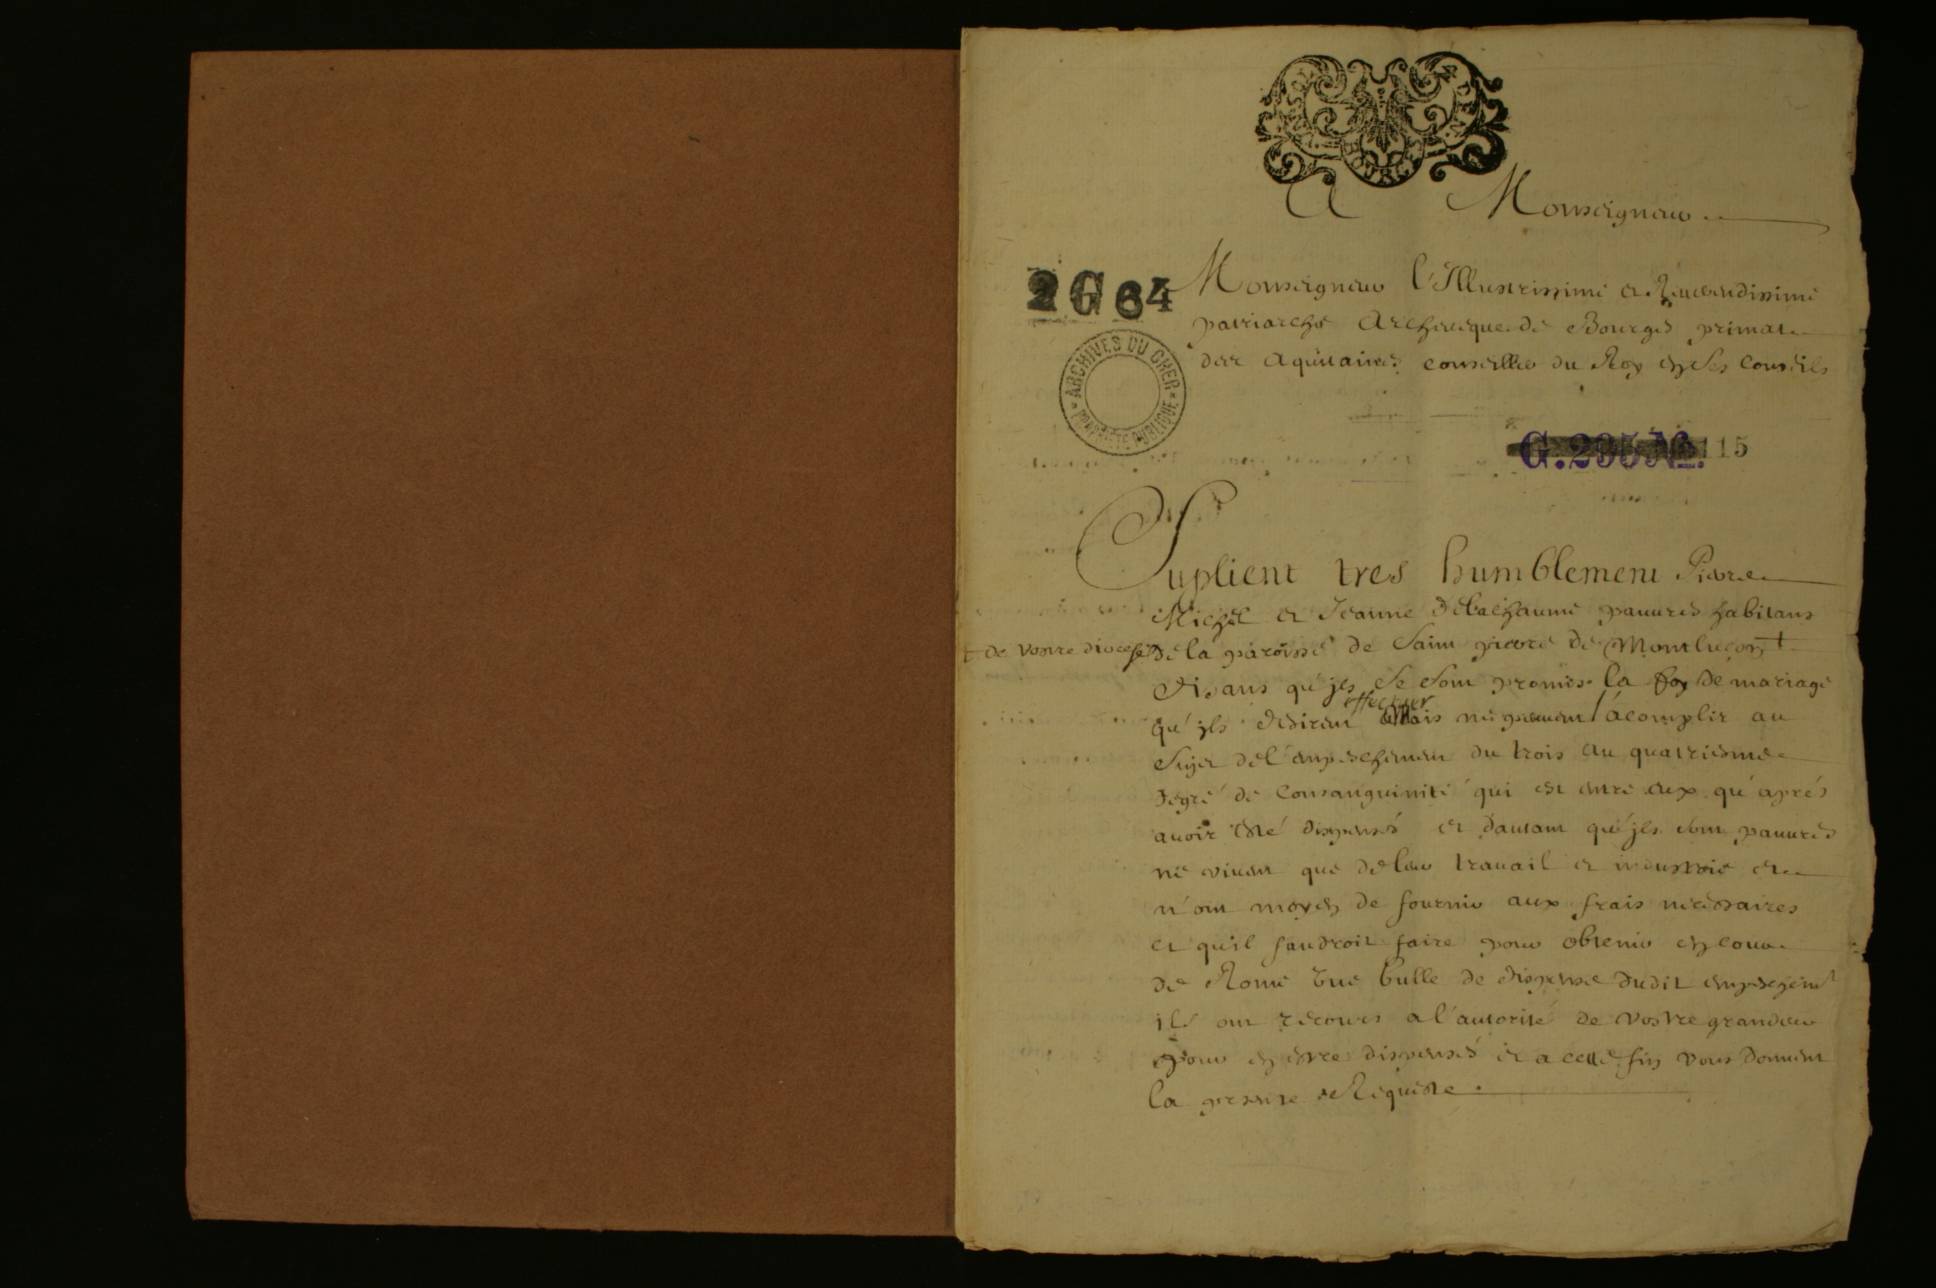 BOURGES
A Monseigneur
2 G 64
Monseigneur l'Illustrissime et Reuerendissime
patriarche Archeuesque de Bourges primat
des Aquitaines conseiller du Roy en ses conseils
ARCHIVES DU CHER
PROPRIETE PUBLIQUE
G. 295 No. 115
Suplient tres humblement Pierre
Michel et Jeanne Debachaume pauures habitans
+ de vostre diocese
de la paroisse de Saint pierre de Montluçon +
disans qu'jls se sont promis la foy de mariage
effectuer
qu'jls desirent mais ne peuuent l'acomplir au
sujet de l'empeschement du trois au quatriesme
degré de consanguinité qui est entre eux qu'aprés
auoir esté dispensés et d'autant qu'jls sont pauures
ne viuent que de leur trauail et industrie et
n'ont moyen de fournir aux frais necessaires
et qu'il faudroit faire pour obtenir en cour
de Rome vne bulle de dispense dudit empeschemt
ils ont recours a l'autorité de vostre grandeur
pour en estre dispensés et a cette fin vous donnent
la presente Requeste .